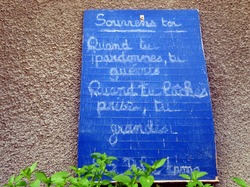 Souviens toi
Quand tu
pardonnes, tu
guéris
Quand tu lâches
prise, tu
grandis